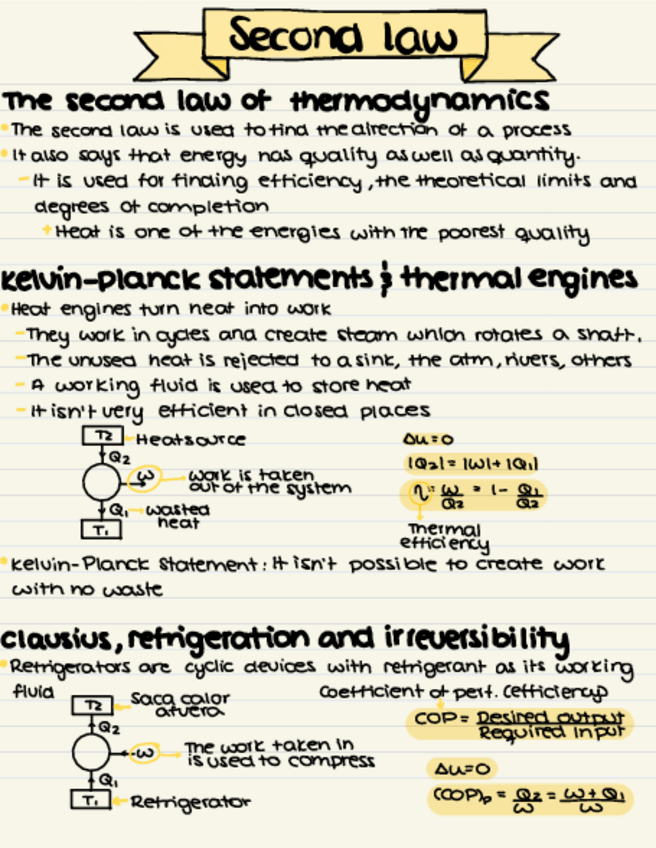 Second law
The second law of thermodynamics
The second law is used to find the direction of a process
It also says that energy has quality as well as quantity.
- It is used for finding efficiency, the theoretical limits and
degrees of completion
+ Heat is one of the energies with the poorest quality
Kelvin-Planck statements & thermal engines
Heat engines turn heat into work
- They work in cycles and create steam which rotates a shaft.
- The unused heat is rejected to a sink, the atm, rivers, others
- A working fluid is used to store heat
- It isn't very efficient in closed places
T2 - Heat source
Q2
W - work is taken
out of the system
Q1 - wasted
heat
T1
Δu=0
|Q2| = |W| + |Q1|
η = W/Q2 = 1 - Q1/Q2
Thermal
efficiency
Kelvin-Planck Statement: It isn't possible to create work
with no waste
Clausius, refrigeration and irreversibility
Refrigerators are cyclic devices with refrigerant as its working
fluid
T2 Saca calor
afuera
Q2
W The work taken in
is used to compress
Q1
T1 Refrigerator
Coefficient of perf. (efficiency)
COP = Desired output / Required Input
Δu=0
(COP)p = Q2/W = W+Q1/W